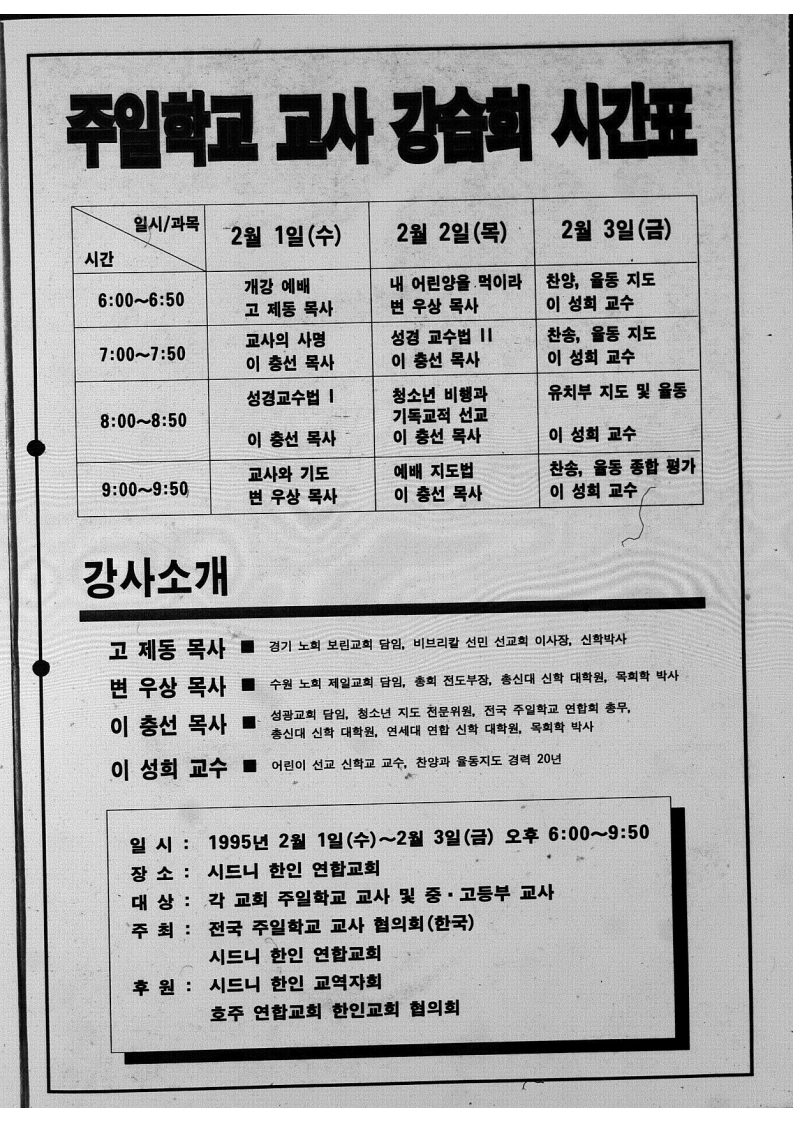 주일학교 교사 강습회 시간표
일시/과목
시간
2월 1일(수)
2월 2일(목)
2월 3일(금)
6:00~6:50
개강 예배
고 제동 목사
내 어린양을 먹이라
변 우상 목사
찬양, 율동 지도
이 성희 교수
7:00~7:50
교사의 사명
이 충선 목사
성경 교수법 II
이 충선 목사
찬송, 율동 지도
이 성희 교수
8:00~8:50
성경교수법 I
이 충선 목사
청소년 비행과
기독교적 선교
이 충선 목사
유치부 지도 및 율동
이 성희 교수
9:00~9:50
교사와 기도
변 우상 목사
예배 지도법
이 충선 목사
찬송, 율동 종합 평가
이 성희 교수
강사소개
고 제동 목사 ■ 경기 노회 보린교회 담임, 비브리칼 선민 선교회 이사장, 신학박사
변 우상 목사 ■ 수원 노회 제일교회 담임, 총회 전도부장, 총신대 신학 대학원, 목회학 박사
이 충선 목사 ■ 성광교회 담임, 청소년 지도 전문위원, 전국 주일학교 연합회 총무,
총신대 신학 대학원, 연세대 연합 신학 대학원, 목회학 박사
이 성희 교수 ■ 어린이 선교 신학교 교수, 찬양과 율동지도 경력 20년
일 시 : 1995년 2월 1일(수)~2월 3일(금) 오후 6:00~9:50
장 소 : 시드니 한인 연합교회
대 상 : 각 교회 주일학교 교사 및 중·고등부 교사
주 최 : 전국 주일학교 교사 협의회(한국)
시드니 한인 연합교회
후 원 : 시드니 한인 교역자회
호주 연합교회 한인교회 협의회